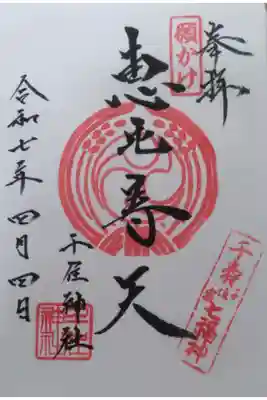 奉拝
願かけ
恵比寿天
千寿
七福神
千住神社
令和七年四月四日